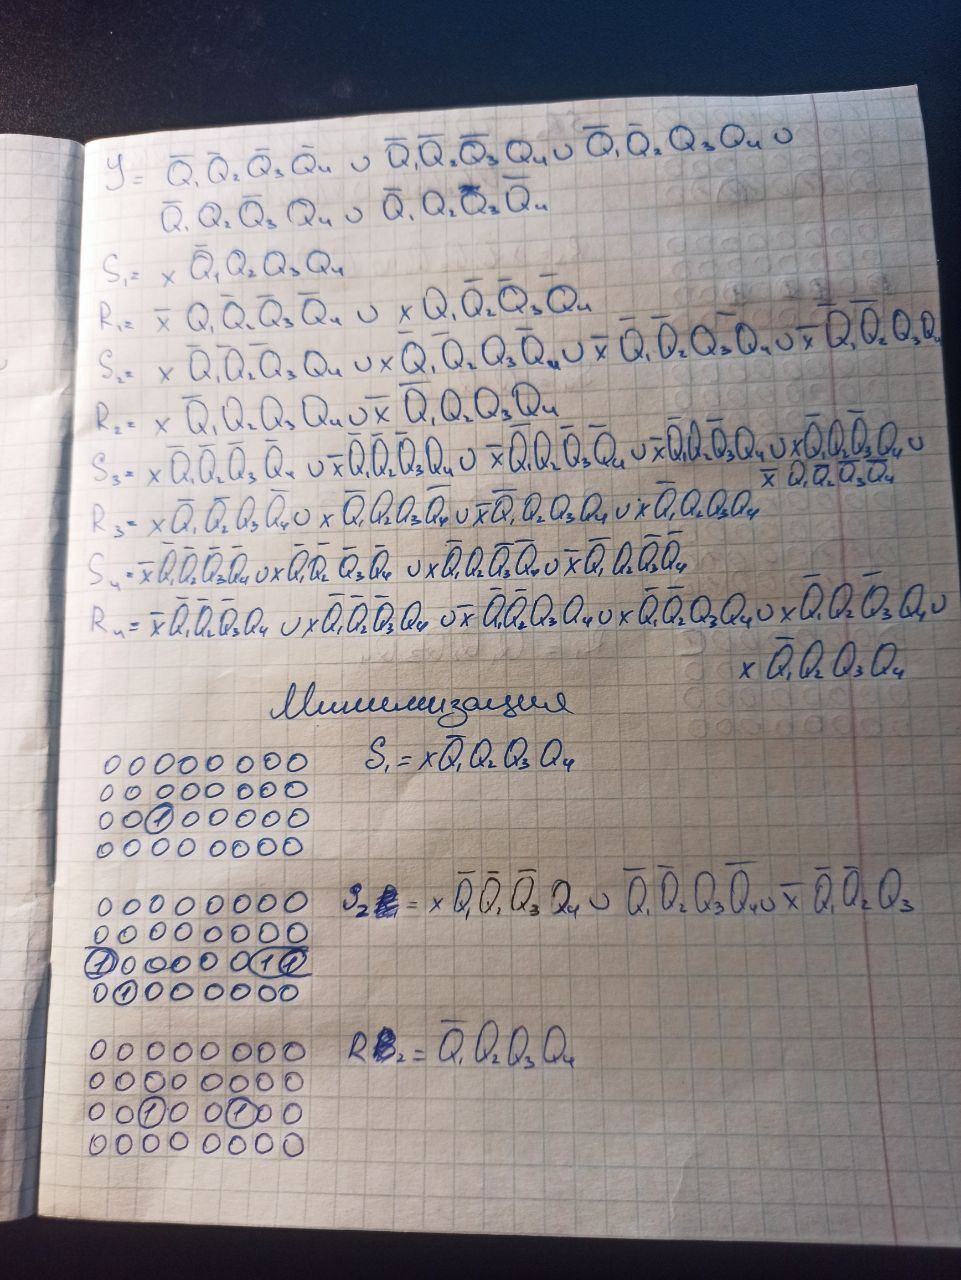 y = Q̄₁ Q̄₂ Q̄₃ Q̄₄ ∪ Q̄₁ Q̄₂ Q̄₃ Q₄ ∪ Q̄₁ Q̄₂ Q₃ Q₄ ∪
Q̄₁ Q₂ Q̄₃ Q₄ ∪ Q̄₁ Q₂ Q̄₃ Q̄₄
S₁ = x Q̄₁ Q₂ Q₃ Q₄
R₁ = x̄ Q₁ Q̄₂ Q̄₃ Q̄₄ ∪ x Q₁ Q̄₂ Q̄₃ Q̄₄
S₂ = x Q̄₁ Q̄₂ Q̄₃ Q₄ ∪ x Q̄₁ Q̄₂ Q₃ Q̄₄ ∪ x̄ Q̄₁ Q̄₂ Q₃ Q̄₄ ∪ x̄ Q̄₁ Q̄₂ Q₃ Q₄
R₂ = x Q̄₁ Q₂ Q₃ Q₄ ∪ x̄ Q̄₁ Q₂ Q₃ Q₄
S₃ = x Q̄₁ Q̄₂ Q̄₃ Q̄₄ ∪ x̄ Q̄₁ Q̄₂ Q̄₃ Q₄ ∪ x Q̄₁ Q₂ Q̄₃ Q̄₄ ∪ x̄ Q̄₁ Q₂ Q̄₃ Q₄ ∪ x Q̄₁ Q₂ Q̄₃ Q₄ ∪
x̄ Q₁ Q̄₂ Q̄₃ Q̄₄
R₃ = x Q̄₁ Q̄₂ Q₃ Q̄₄ ∪ x Q̄₁ Q₂ Q₃ Q̄₄ ∪ x̄ Q̄₁ Q₂ Q₃ Q₄ ∪ x Q̄₁ Q₂ Q₃ Q₄
S₄ = x̄ Q̄₁ Q̄₂ Q̄₃ Q̄₄ ∪ x Q̄₁ Q̄₂ Q̄₃ Q̄₄ ∪ x Q̄₁ Q₂ Q̄₃ Q̄₄ ∪ x̄ Q̄₁ Q₂ Q̄₃ Q̄₄
R₄ = x̄ Q̄₁ Q̄₂ Q̄₃ Q₄ ∪ x Q̄₁ Q̄₂ Q̄₃ Q₄ ∪ x̄ Q̄₁ Q̄₂ Q₃ Q₄ ∪ x Q̄₁ Q̄₂ Q₃ Q₄ ∪ x Q̄₁ Q₂ Q̄₃ Q₄ ∪
x Q̄₁ Q₂ Q₃ Q₄
Минимизация
0 0 0 0 0 0 0 0 S₁ = x Q̄₁ Q₂ Q₃ Q₄
0 0 0 0 0 0 0 0
0 0 1 0 0 0 0 0
0 0 0 0 0 0 0 0
0 0 0 0 0 0 0 0 S₂ = x Q̄₁ Q̄₂ Q̄₃ Q₄ ∪ Q̄₁ Q̄₂ Q₃ Q̄₄ ∪ x̄ Q̄₁ Q̄₂ Q₃
0 0 0 0 0 0 0 0
1 0 0 0 0 0 1 1
0 1 0 0 0 0 0 0
0 0 0 0 0 0 0 0 R₂ = Q̄₁ Q₂ Q₃ Q₄
0 0 0 0 0 0 0 0
0 0 1 0 0 1 0 0
0 0 0 0 0 0 0 0